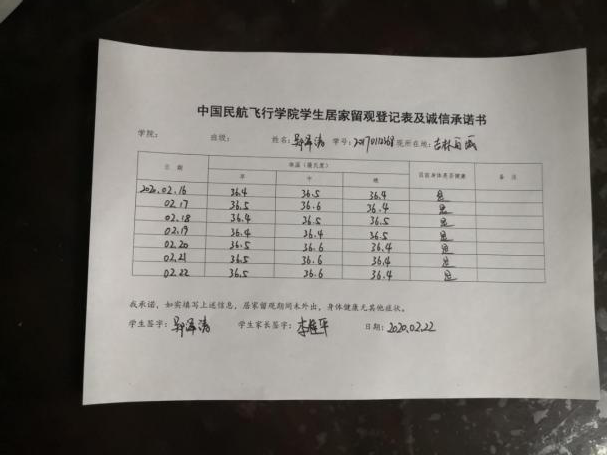 中国民航飞行学院学生居家留观登记表及诚信承诺书
学院： 班级： 姓名： 学号： 现所在地：吉林
日期 体温（摄氏度） 目前身体是否健康 备注
早 中 晚
2020.02.16 36.4 36.5 36.4 是
02.17 36.5 36.6 36.4 是
02.18 36.4 36.5 36.5 是
02.19 36.4 36.4 36.5 是
02.20 36.5 36.6 36.4 是
02.21 36.5 36.6 36.4 是
02.22 36.5 36.6 36.4 是
我承诺，如实填写上述信息，居家留观期间未外出，身体健康无其他症状。
学生签字： 学生家长签字： 日期：2020.02.22